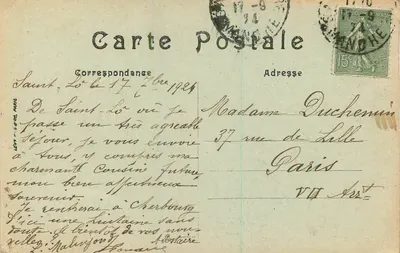 17-9
24
MANCHE
17-9
MANCHE
15
Carte Postale
Correspondance
Adresse
Saint, Lô le 17 7bre 1924
De Saint-Lô où je
passe un très agréable
séjour, je vous envoie
à tous, y compris ma
charmante Cousine future
mon bien affectueux
souvenir
Je rentrerai à Cherbourg
d'ici une huitaine sans
doute. A bientôt de vos nouvelles
Madame Duchemin
37 rue de Lille
Paris
VII Arrt